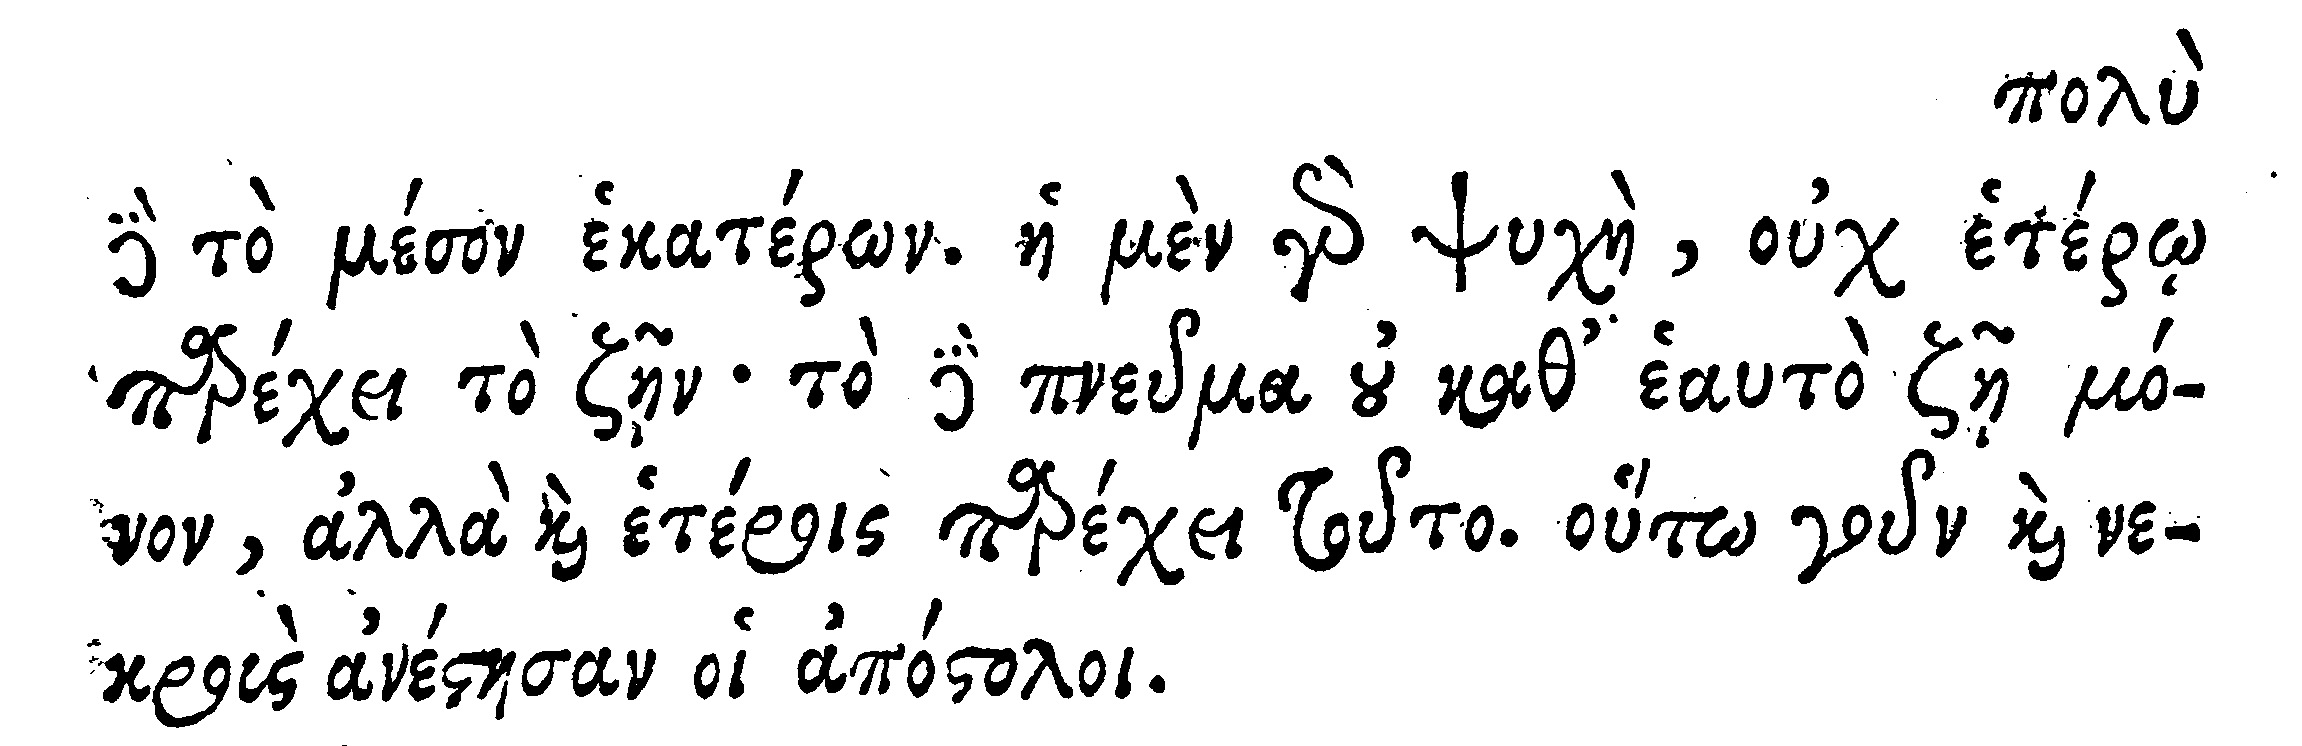 πολὺ
δὲ τὸ μέσον ἑκατέρων. ἡ μὲν γὰρ ψυχὴ, οὐχ ἑτέρῳ
παρέχει τὸ ζῇν· τὸ δὲ πνεῦμα οὐ καθ' ἑαυτὸ ζῇ μό-
νον, ἀλλὰ καὶ ἑτέροις παρέχει τοῦτο. οὕτω γοῦν καὶ νε-
κροὺς ἀνέστησαν οἱ ἀπόστολοι.